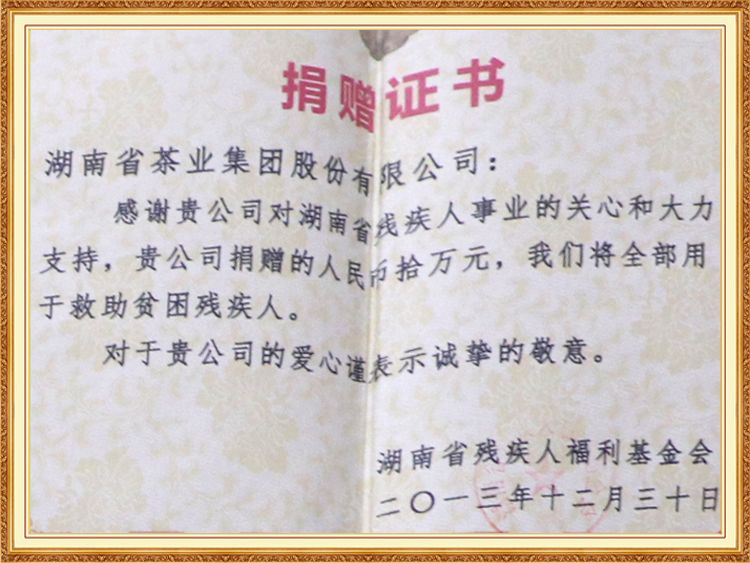 捐赠证书
湖南省茶业集团股份有限公司：
感谢贵公司对湖南省残疾人事业的关心和大力
支持，贵公司捐赠的人民币拾万元，我们将全部用
于救助贫困残疾人。
对于贵公司的爱心谨表示诚挚的敬意。
湖南省残疾人福利基金会
二〇一三年十二月三十日